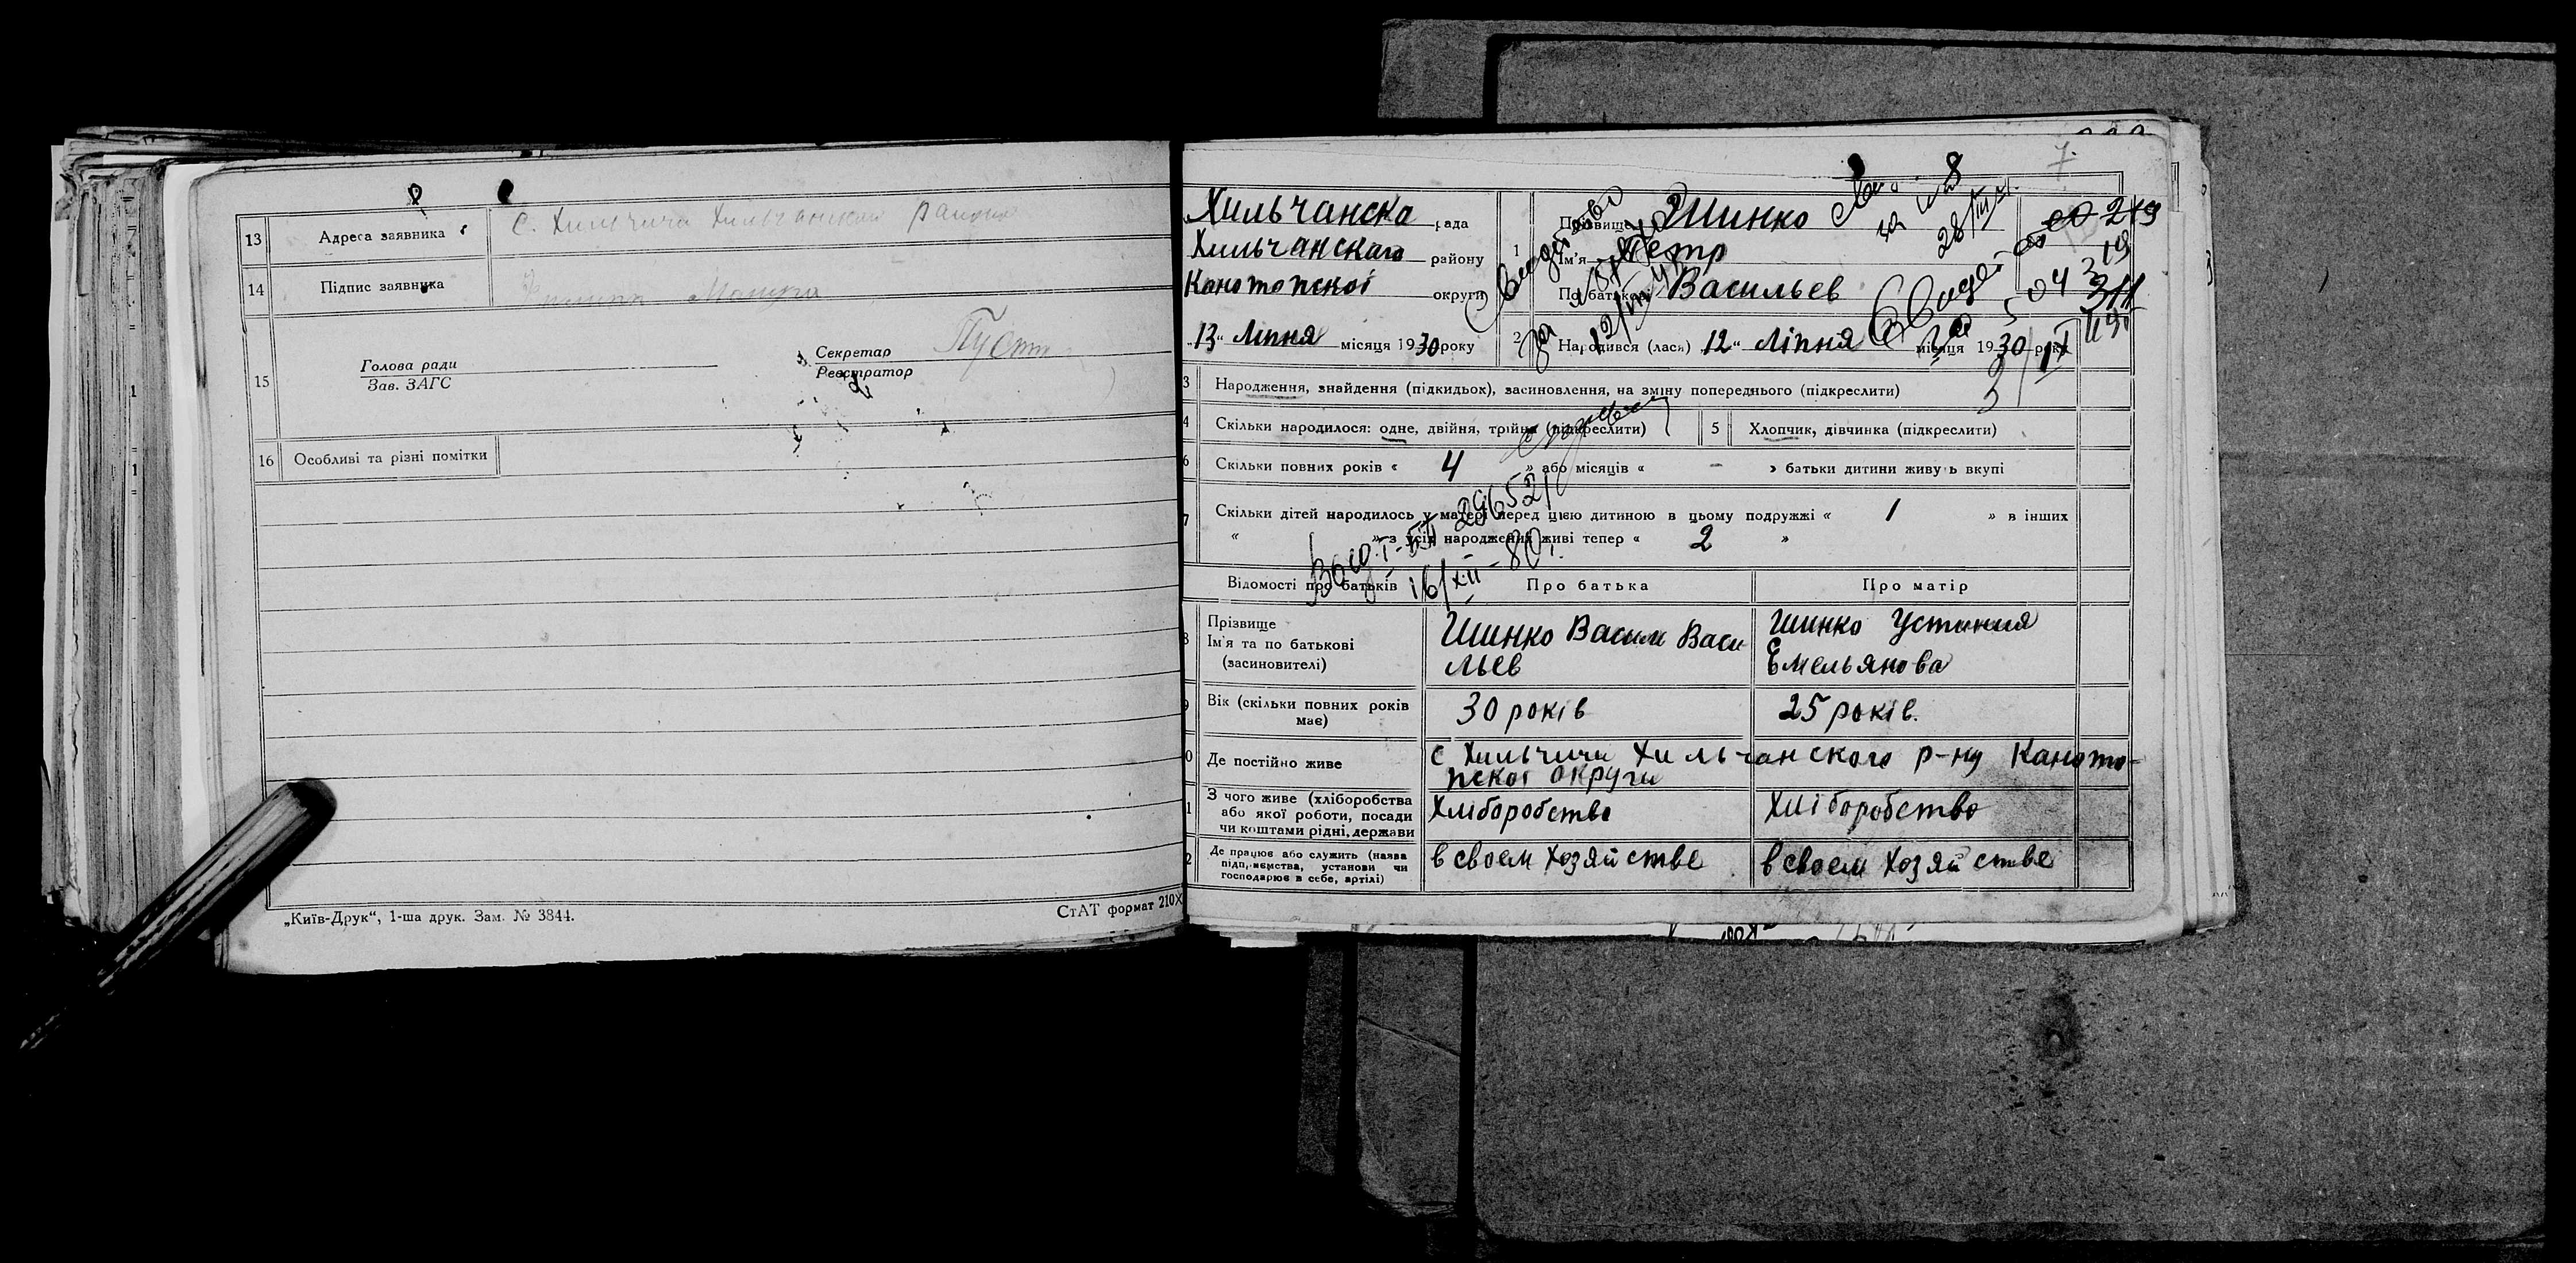 13 Адреса заявника с. Хильчичи Хильчанском района
14 Підпис заявника
15 Голова ради
Зав. ЗАГС
Секретар
Реєстратор
16 Особливі та різні помітки
„Київ-Друк“, 1-ша друк. Зам. № 3844.
СтАТ формат 210Х
7.
Хильчанска рада
Хильчанскаго району
Канотопскоі округи
„13“ Ліпня місяця 1930 року
1 Прізвище Шинко
Ім'я Петр
По батькові Васильев
28/III
2 Народився (лася) „12“ Ліпня місяця 1930 року
3 Народження, знайдення (підкидьох), засиновлення, на зміну попереднього (підкреслити)
4 Скільки народилося: одне, двійня, трійня (підкреслити) 5 Хлопчик, дівчинка (підкреслити)
6 Скільки повних років « 4 » або місяців « - » батьки дитини живуть вкупі
7 Скільки дітей народилось у матері перед цією дитиною в цьому подружжі « 1 » в інших
« » з усіх народжених живі тепер « 2 »
296521
16/XII-80г.
Відомості про батьків Про батька Про матір
8 Прізвище
Ім'я та по батькові
(засиновителі)
Шинко Васили Васи
льев
Шинко Устиния
Емельянова
9 Вік (скільки повних років
має)
30 років
25 років.
0 Де постійно живе
с Хильчичи Хильчанского р-ну Каното-
пскоі округи
1 З чого живе (хліборобства
або якої роботи, посади
чи коштами рідні, держави
Хліборобство
Хліборобство
2 Де працює або служить (назва
підприємства, установи чи
господарює в себе, артілі)
в своем хозяйстве
в своем хозяйстве